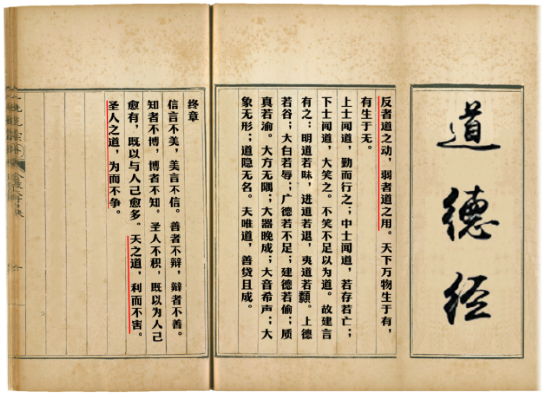 道德经
反者道之动,弱者道之用。天下万物生于有,
有生于无。
上士闻道,勤而行之;中士闻道,若存若亡;
下士闻道,大笑之。不笑不足以为道。故建言
有之:明道若昧,进道若退,夷道若纇。上德
若谷;大白若辱;广德若不足;建德若偷;质
真若渝。大方无隅;大器晚成;大音希声;大
象无形;道隐无名。夫唯道,善贷且成。
终章
信言不美,美言不信。善者不辩,辩者不善。
知者不博,博者不知,圣人不积,既以为人己
愈有,既以与人己愈多。天之道,利而不害。
圣人之道,为而不争。